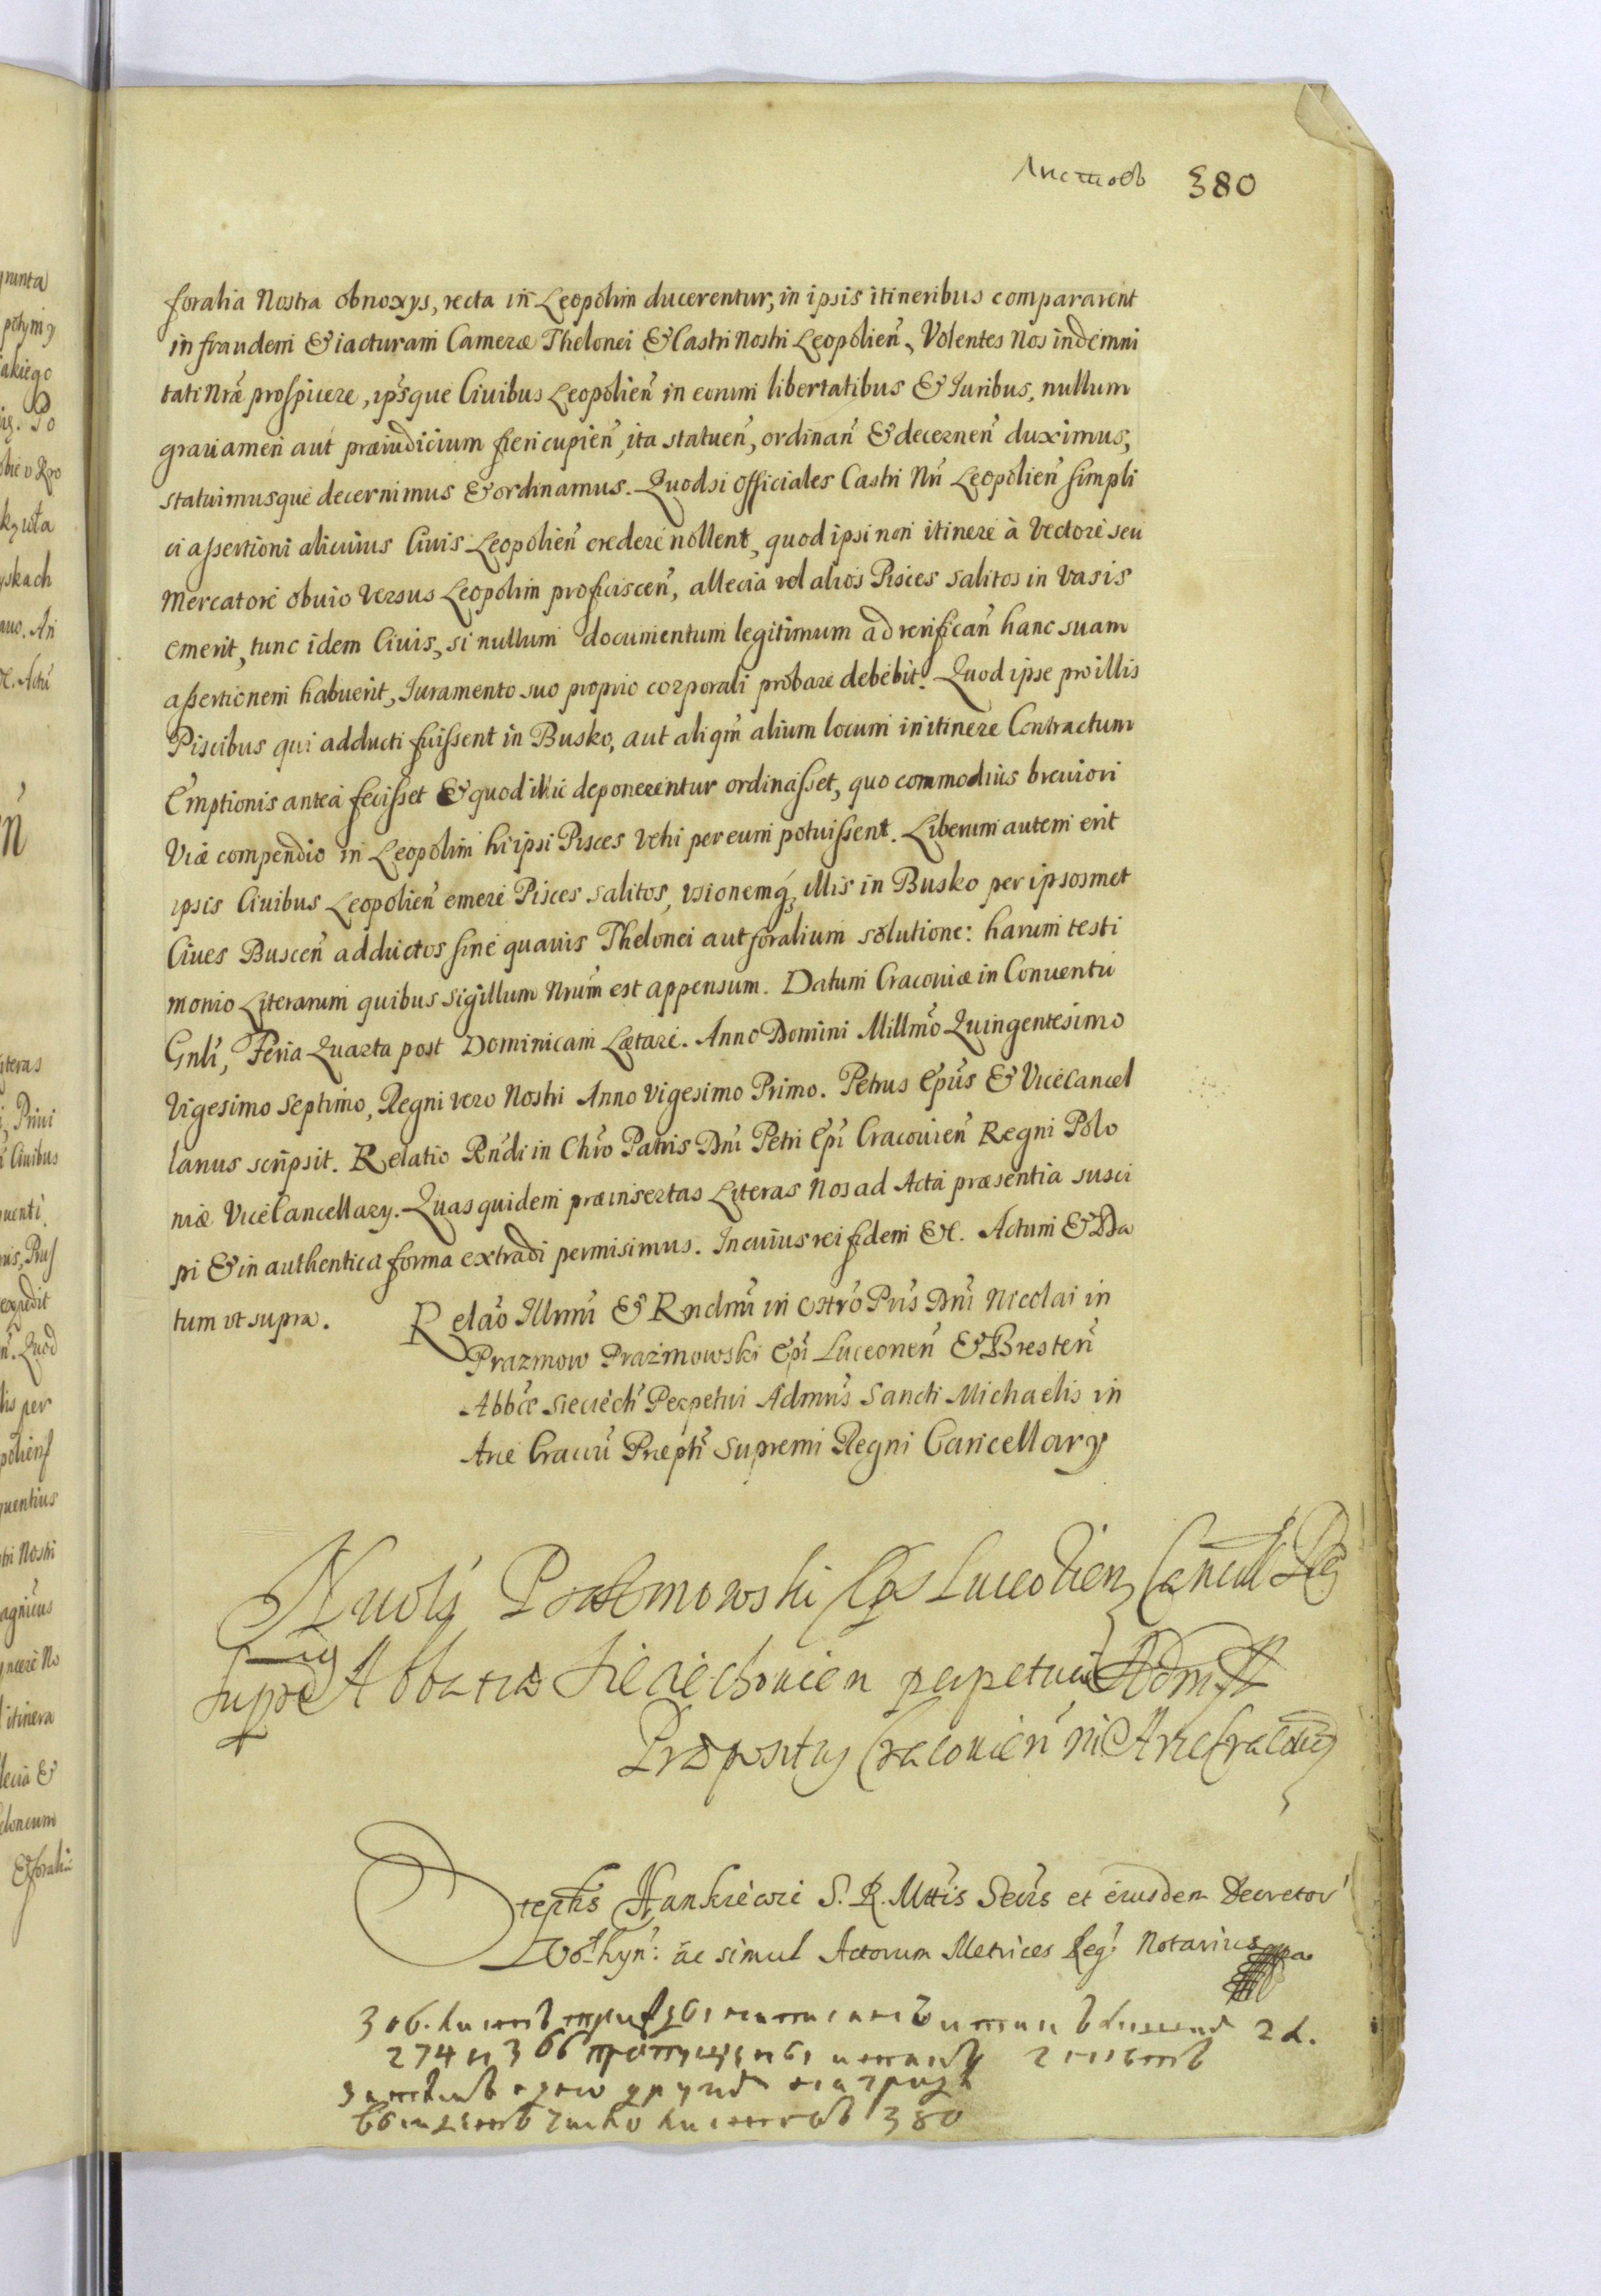 Листовъ 380
foralia Nostra obnoxys, recta in Leopolim ducerentur, in ipsis itineribus compararent
in fraudem & iacturam Cameræ Thelonei & Castri Nostri Leopolien̄, Volentes Nos indemni
tati Nr̄æ prospicere, ip̄sque Ciuibus Leopolien̄ in eorum libertatibus & Iuribus, nullum
grauamen aut præiudicium fieri cupien̄, ita statuen̄, ordinan̄ & decernen̄ duximus,
statuimusque decernimus & ordinamus. Quodsi officiales Castri Nr̄i Leopolien̄ simpli
ci assertioni alicuius Ciuis Leopolien̄ credere nollent, quod ipsi non itinere à Vectore seu
Mercatore obuio versus Leopolim proficiscen̄, allecia vel alios Pisces salitos in Vasis
emerit, tunc idem Ciuis, si nullum documentum legitimum ad verifican̄ hanc suam
assertionem habuerit, Iuramento suo proprio corporali probare debebit. Quod ipse pro illis
Piscibus qui adducti fuissent in Busko, aut aliqm̄ alium locum in itinere Contractum
Emptionis antea fecisset & quod illic deponerentur ordinasset, quo commodius breuiori
Viæ compendio in Leopolim hi ipsi Pisces Vehi per eum potuissent. Liberum autem erit
ipsis Ciuibus Leopolien̄ emere Pisces salitos, vsionemq́ illis in Busko per ipsosmet
Ciues Buscen̄ adductos sine quauis Thelonei aut foralium solutione: harum testi
monio Literarum quibus sigillum Nrūm est appensum. Datum Cracouiæ in Conuentu
Gnl̄i, Feria Quarta post Dominicam Lætare. Anno Domini Millm̄o Quingentesimo
Vigesimo Septimo, Regni vero Nostri Anno Vigesimo Primo. Petrus Ep̄us & Vicecancel
larius scripsit. Relatio Rn̄di in Chr̄o Patris Dn̄i Petri Ep̄i Cracouien̄ Regni Polo
niæ Vicecancellary. Quas quidem præinsertas Literas Nos ad Acta præsentia susci
pi & in authentica forma extradi permisimus. In cuius rei fidem &c. Actum & Da
tum vt supra.
Relaō Illmī & Rndmī in Chr̄o Pr̄is Dn̄i Nicolai in
Prazmow Prazmowski Ep̄i Luceoren̄ & Bresten̄
Abb̄æ Sieciech̄ Perpetui Admr̄is Sancti Michaelis in
Arce Cracou̅ Præpt̄i Supremi Regni Cancellary
Nicolaus Prazmowski Ep̄s Luceorien Cancell Reg
Supr Abbatiæ Sieciechouien perpetuus Adm̄r
Præpositus Cracouien̄ in Arce Cracou
Stephs̄ Hankiewic S. R. Mttis Secr̄s et eiusdem Decretor̄
Wołhyn̄: ac simul Actorum Metrices Reg: Notarius mpa
274 и 366 пропущены
листовъ 380